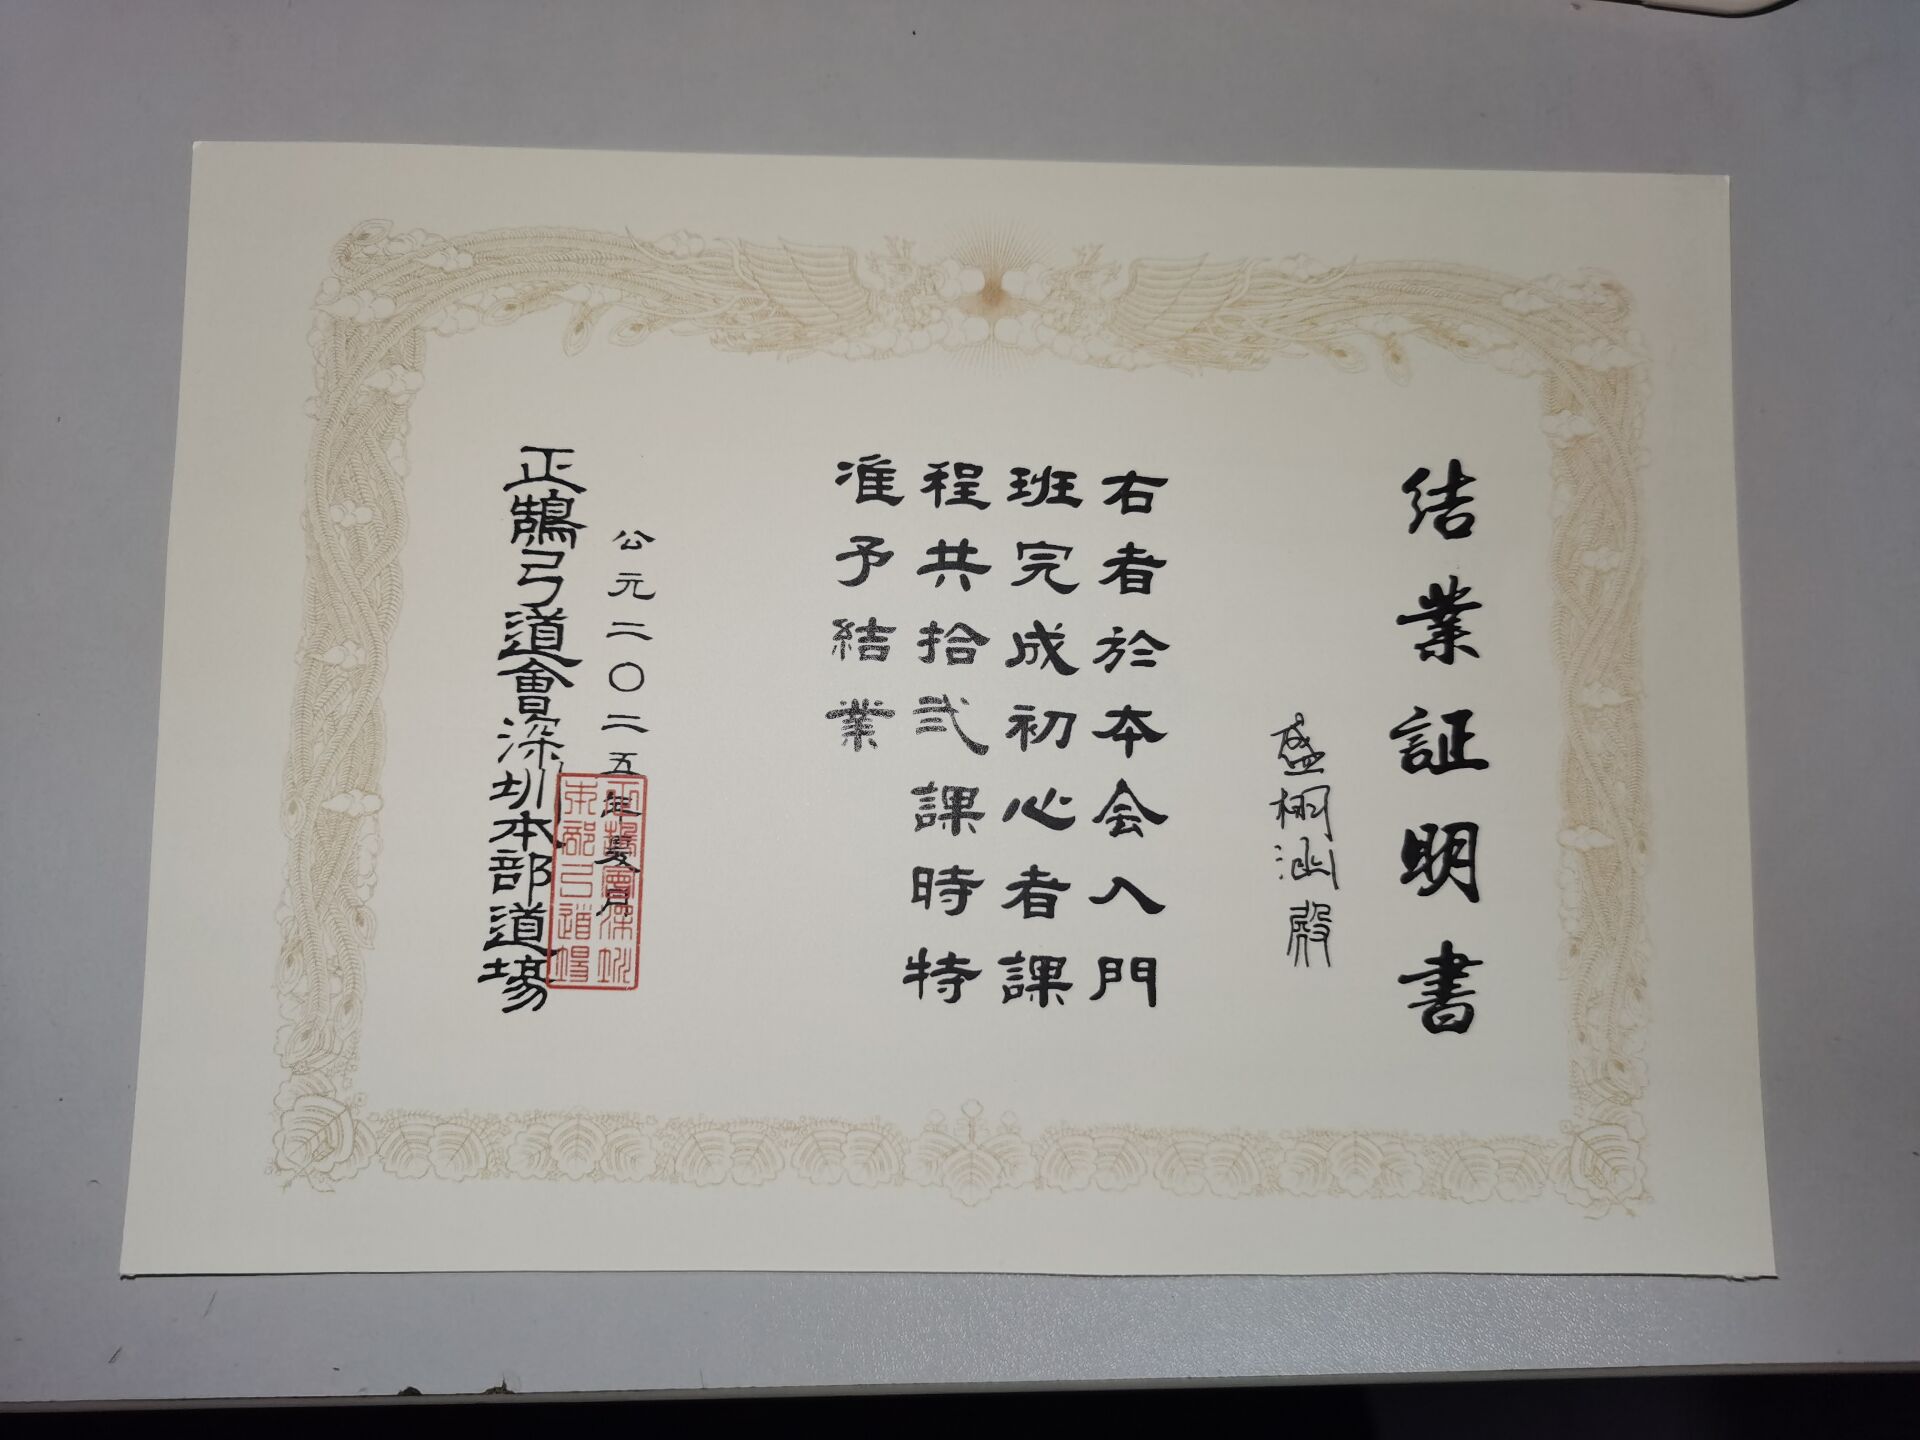 結業証明書
盛栩涵殿
右者於本会入門
班完成初心者課
程共拾弍課時特
准予結業
公元二〇二五年夏月
正鵠弓道會深圳本部道場
正鵠會深圳
本部弓道場